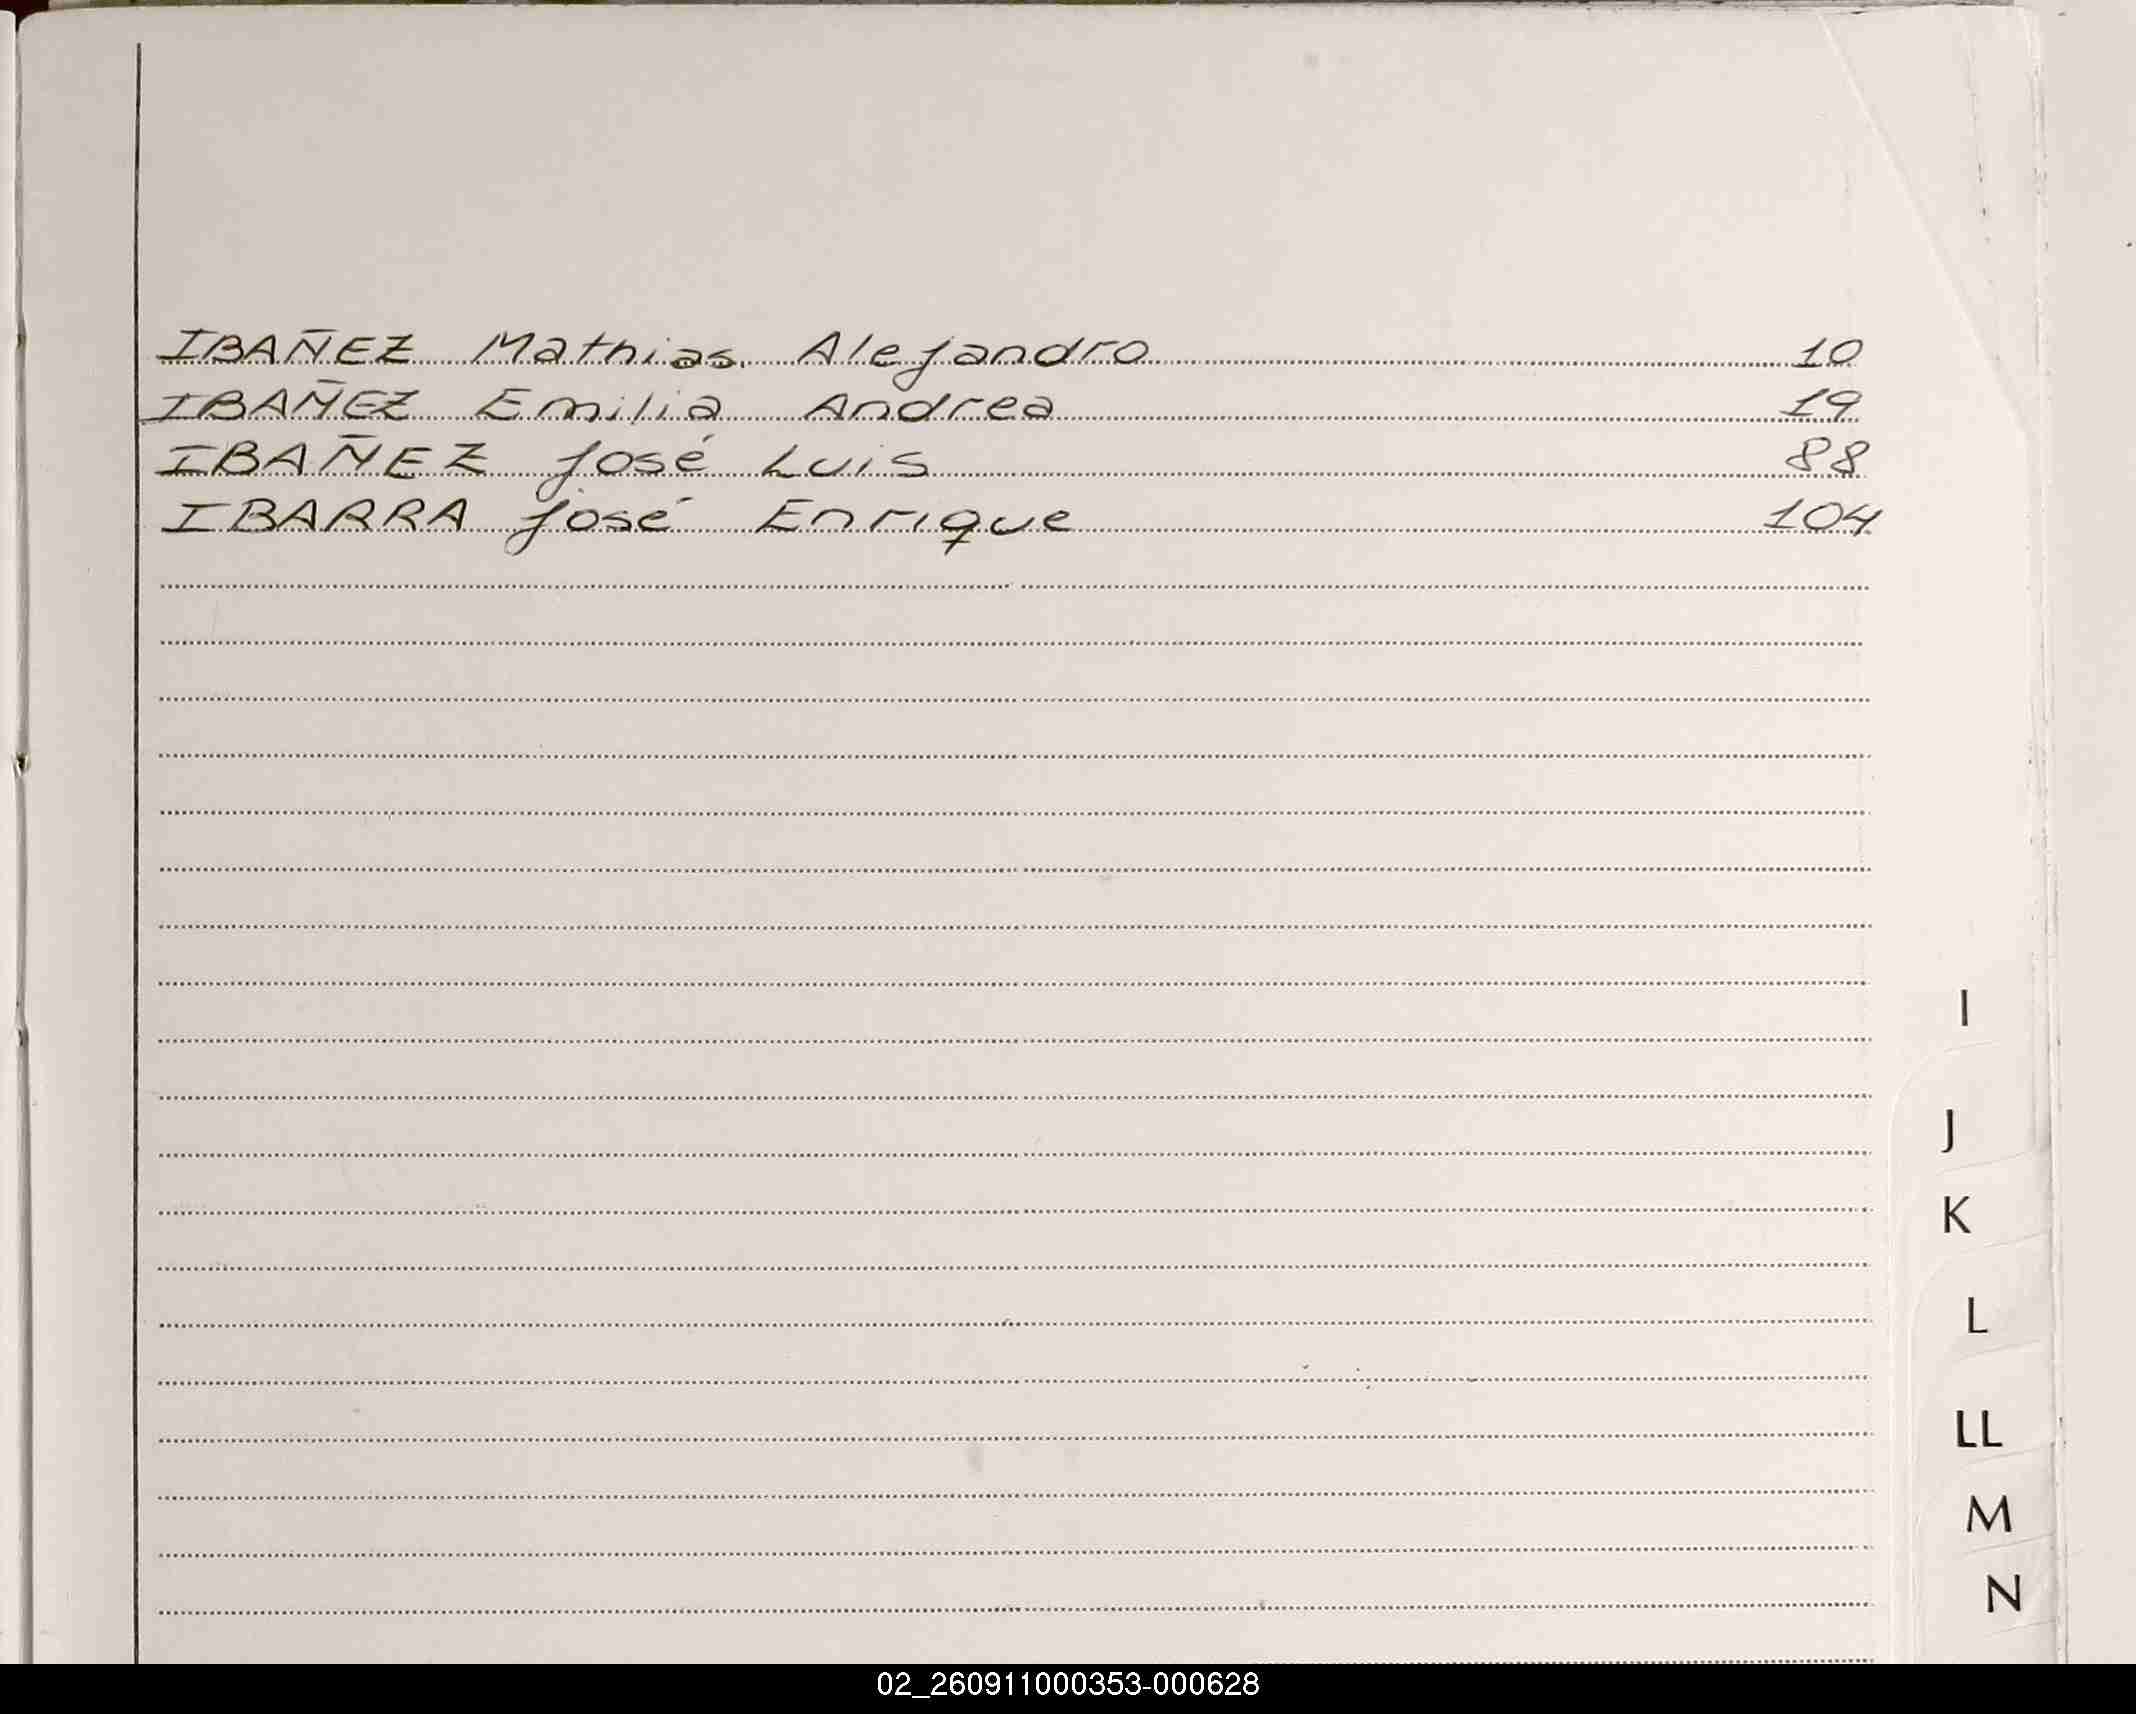 IBAÑEZ Mathias Alejandro 10
IBAÑEZ Emilia Andrea 19
IBAÑEZ José Luis 88
IBARRA José Enrique 104
I
J
K
L
LL
M
N
02_260911000353-000628